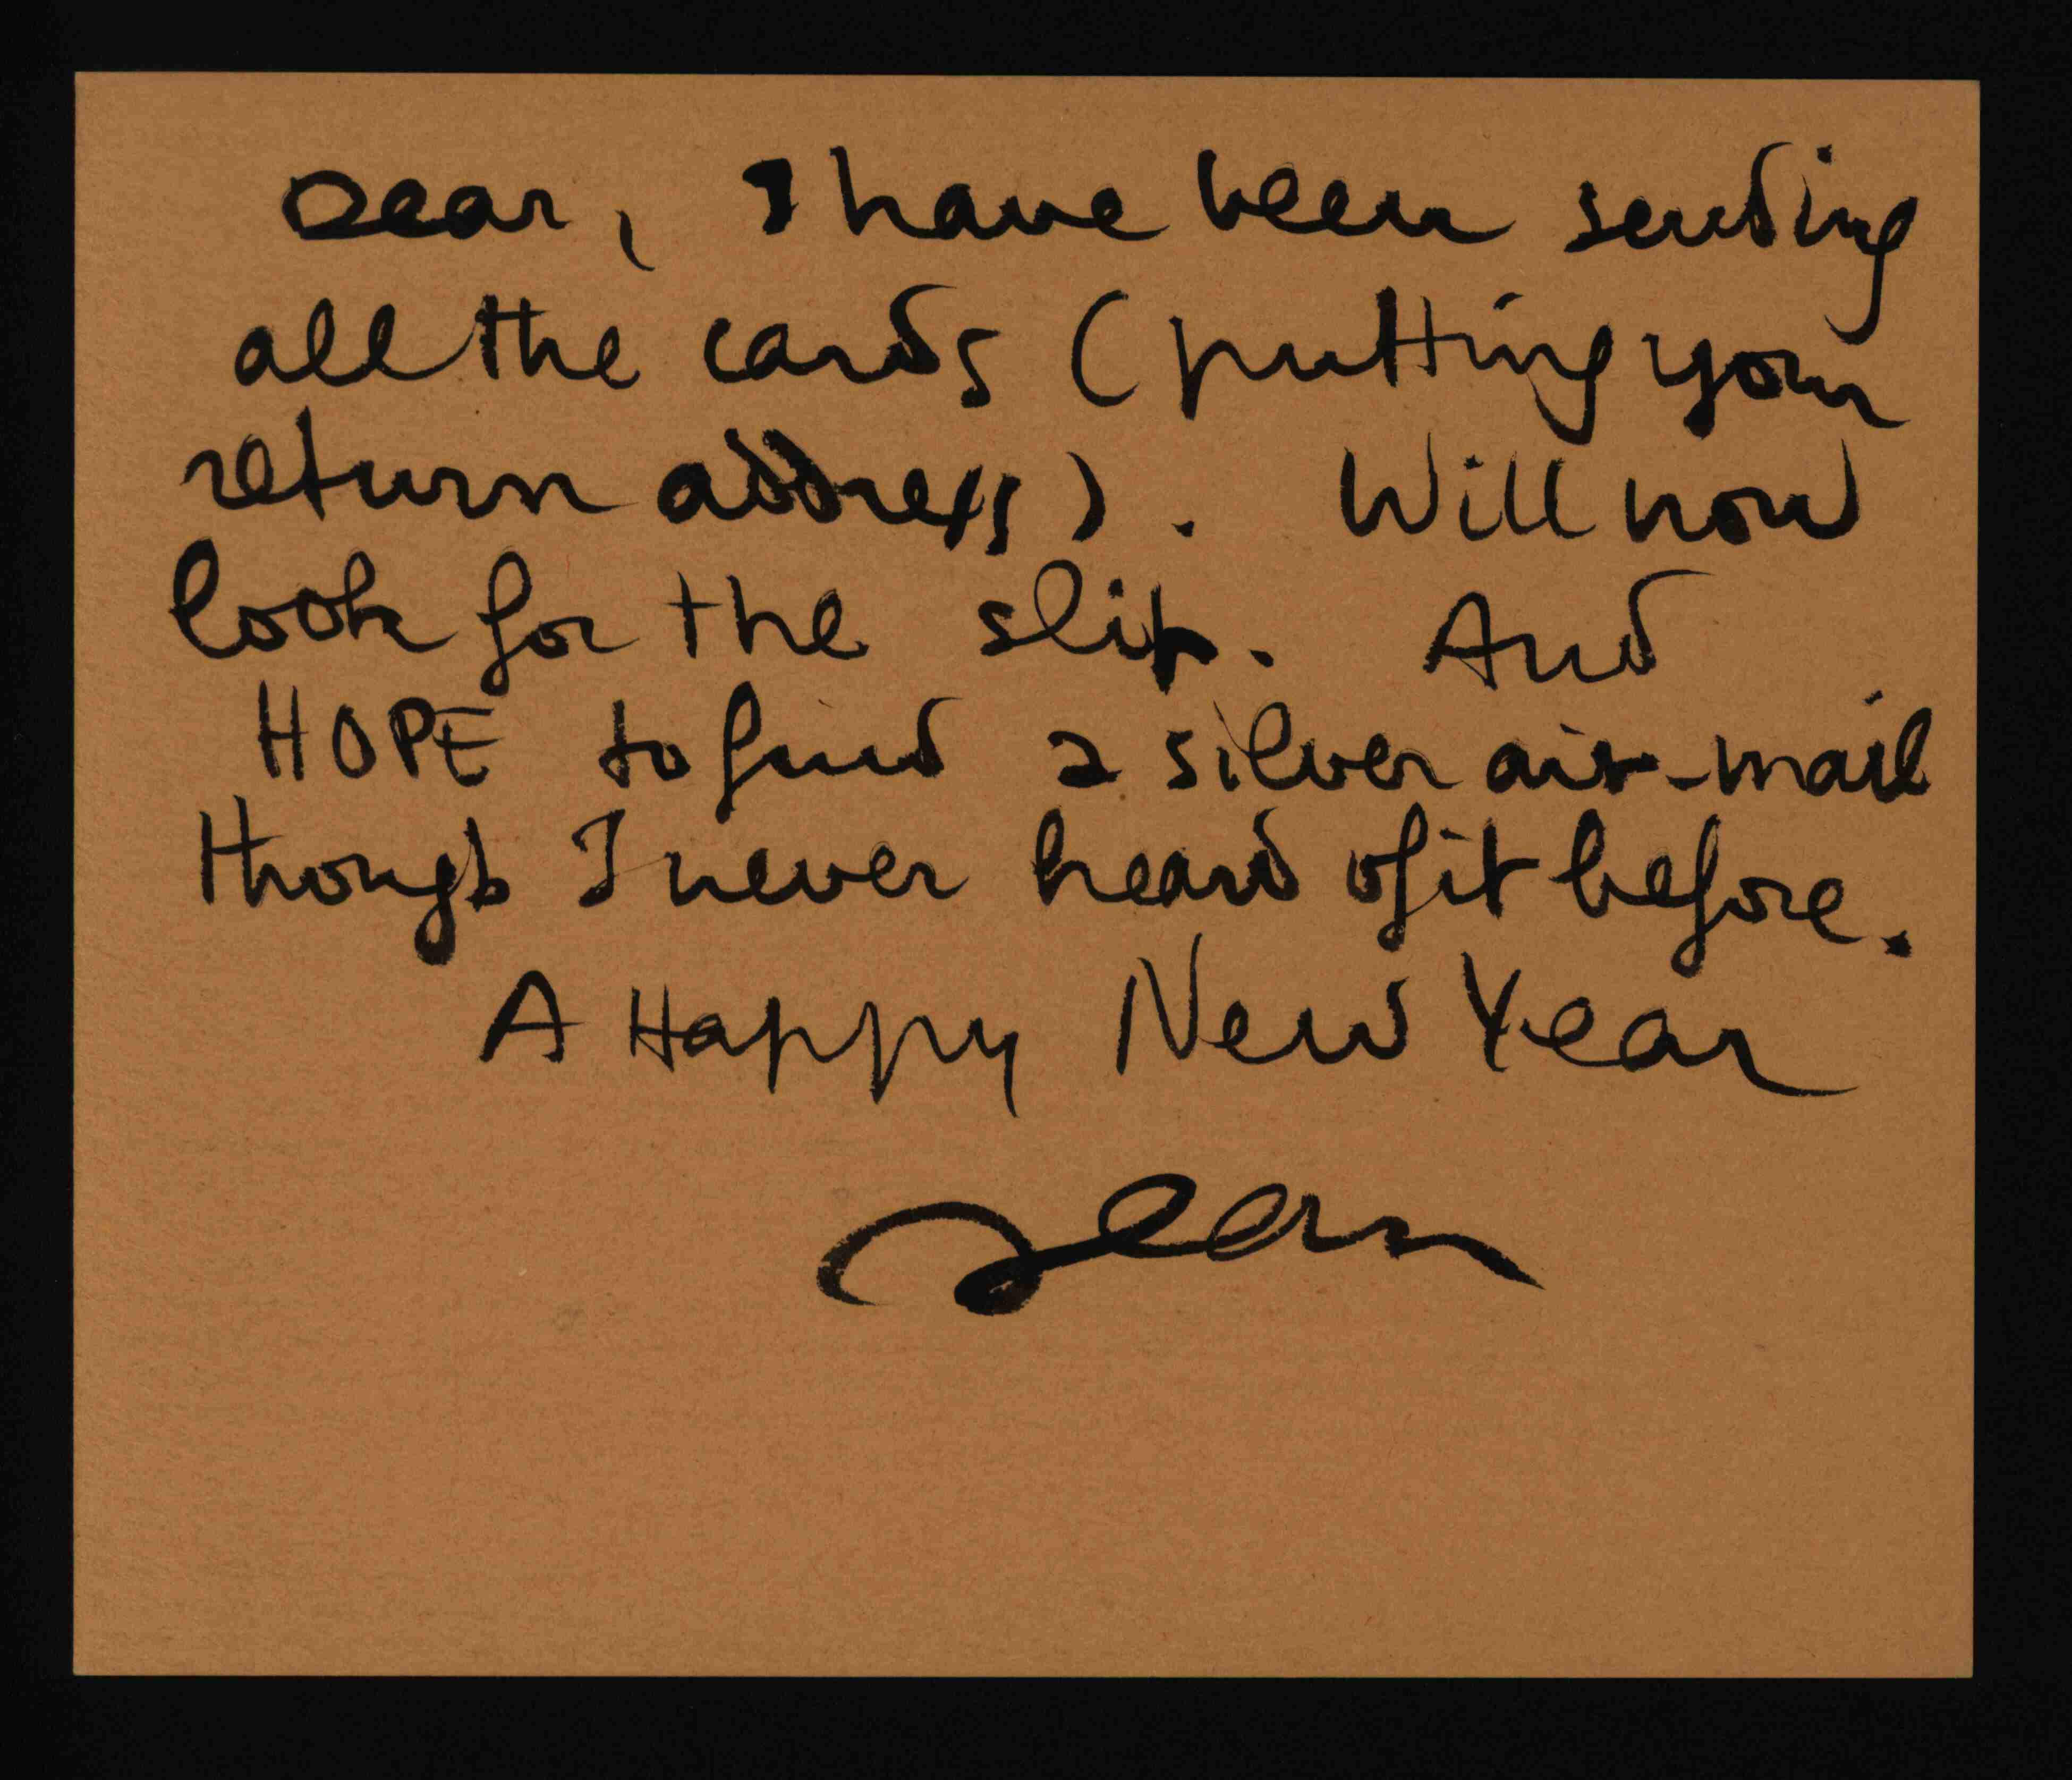 Dear, I have been sending
all the cards (putting your
return address). Will now
look for the slip. And
HOPE to find a silver air-mail
though I never heard of it before.
A Happy New Year